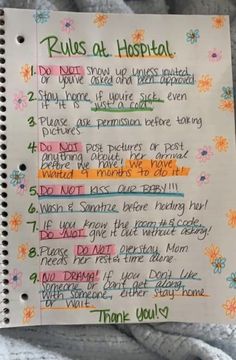 Rules at Hospital.
1. Do NOT show up unless invited
or you've asked and been approved
2. Stay home if you're sick, even
if it is "just a cold"
3. Please ask permission before taking
pictures
4. Do NOT post pictures or post
anything about her arrival
before we have! We have
waited 9 months to do it!
5. DO NOT KISS OUR BABY!!!
6. Wash & Sanatize before holding her!
7. If you know the room # & code,
Do NOT give it out without asking!
8. Please DO NOT overstay. Mom
needs her rest & time alone
9. NO DRAMA! If you Don't like
Someone or can't get along
with someone, either stay home
or wait.
Thank you!